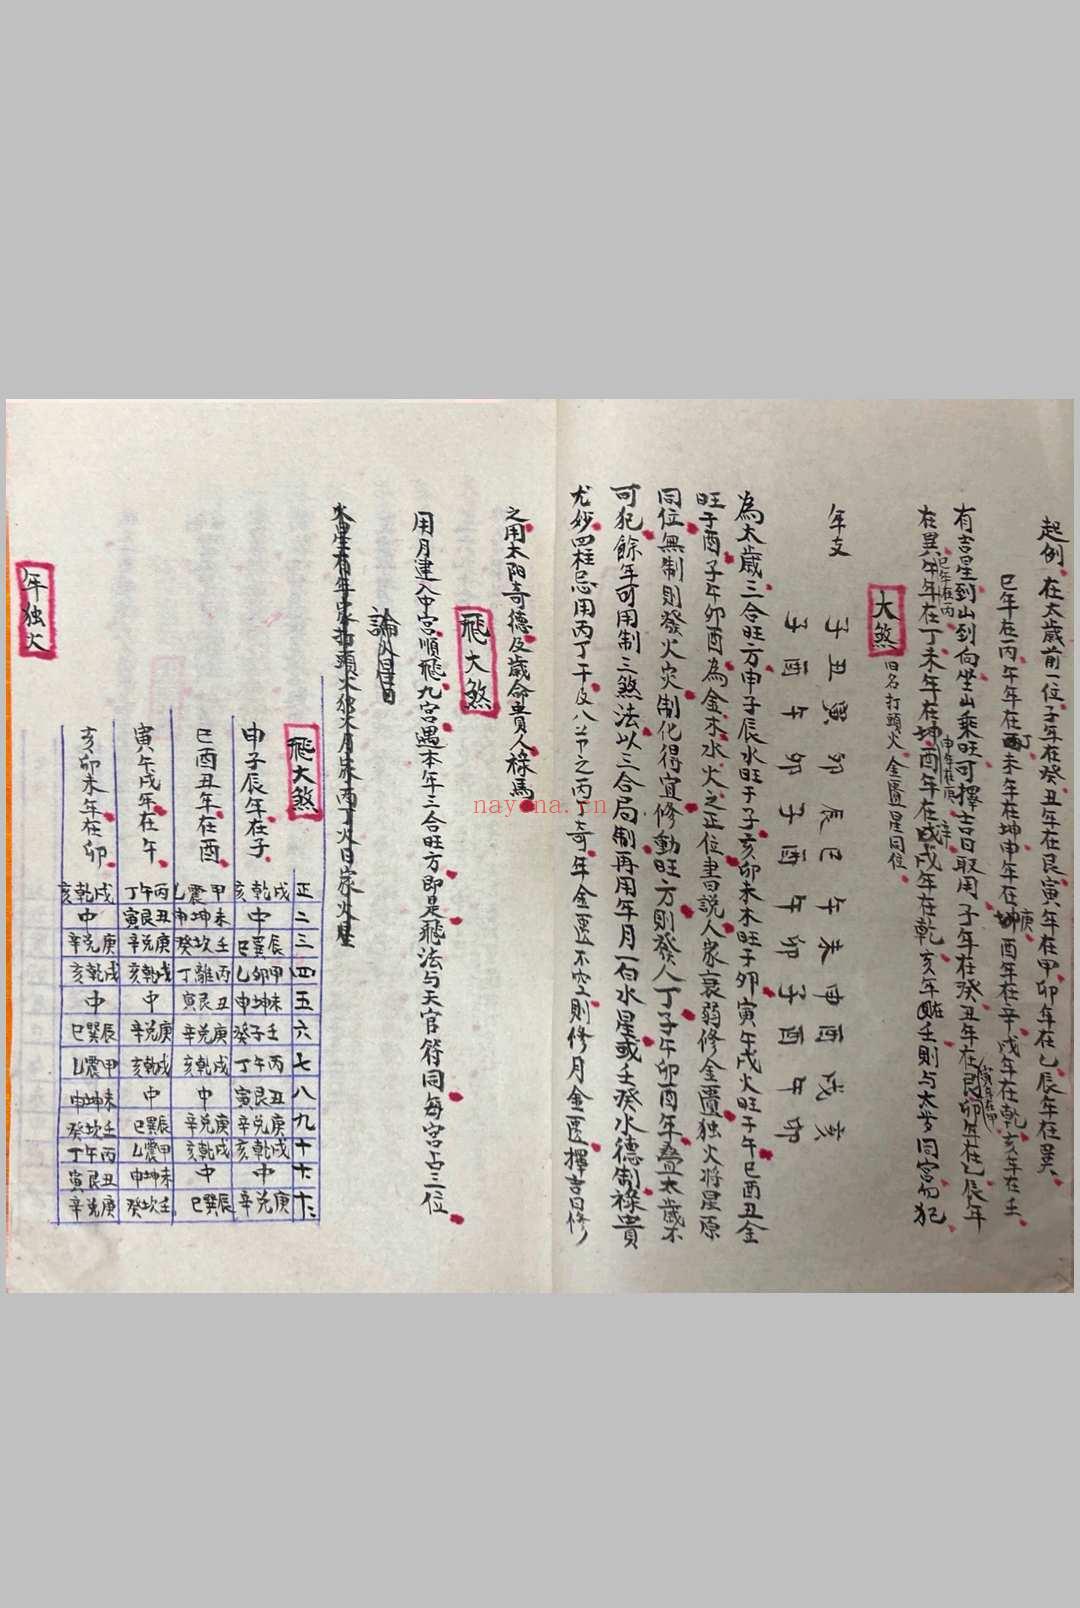 起例 在太歲前一位子年在癸丑年在艮寅年在甲卯年在乙辰年在巽
巳年在丙午年在丁未年在坤申年在庚酉年在辛戌年在乾亥年在壬
有吉星到山到向坐山乘旺可擇吉日取用子年在癸丑年在艮寅年在甲卯年在乙辰年
在巽巳年在丙午年在丁未年在坤申年在庚酉年在辛戌年在乾亥年在壬則与大步同宮勿犯
大煞 旧名打頭火金匱星同位
年支 子丑寅卯辰巳午未申酉戌亥
子酉午卯子酉午卯子酉午卯
為太歲三合旺方申子辰水旺于子亥卯未木旺于卯寅午戌火旺于午巳酉丑金
旺于酉子午卯酉為金木水火之正位書曰説人家衰弱修金匱独火将星原
同位無制則發火灾制化得宜修動旺方則發人丁子午卯酉年叠太歲不
可犯餘年可用制三煞法以三合局制再用年月一白水星或壬癸水德制祿貴
尤妙四柱忌用丙丁干及八节之丙丁奇年金匱不空則修月金匱擇吉日修
之用太阳奇德及歲命貴人祿馬
飛大煞
用月建入中宮順飛九宮遇本年三合旺方即是飛法与天官符同每宮占三位
論火星曰
火星有年家打頭火独火月家丙丁火日家火星
飛大煞 正 二 三 四 五 六 七 八 九 十 十一 十二
申子辰年在子 戌乾亥 中 辰巽巳 甲卯乙 未坤申 壬子癸 丙午丁 丑艮寅 庚兑辛 戌乾亥 中 庚兑辛
巳酉丑年在酉 甲震乙 未坤申 壬坎癸 丙離丁 丑艮寅 庚兑辛 戌乾亥 中 庚兑辛 戌乾亥 中 辰巽巳
寅午戌年在午 丙午丁 丑艮寅 庚兑辛 戌乾亥 中 庚兑辛 戌乾亥 中 辰巽巳 甲震乙 未坤申 壬坎癸
亥卯未年在卯 戌乾亥 中 庚兑辛 戌乾亥 中 辰巽巳 甲震乙 未坤申 壬坎癸 丙午丁 丑艮寅 庚兑辛
年独火
nayona.cn